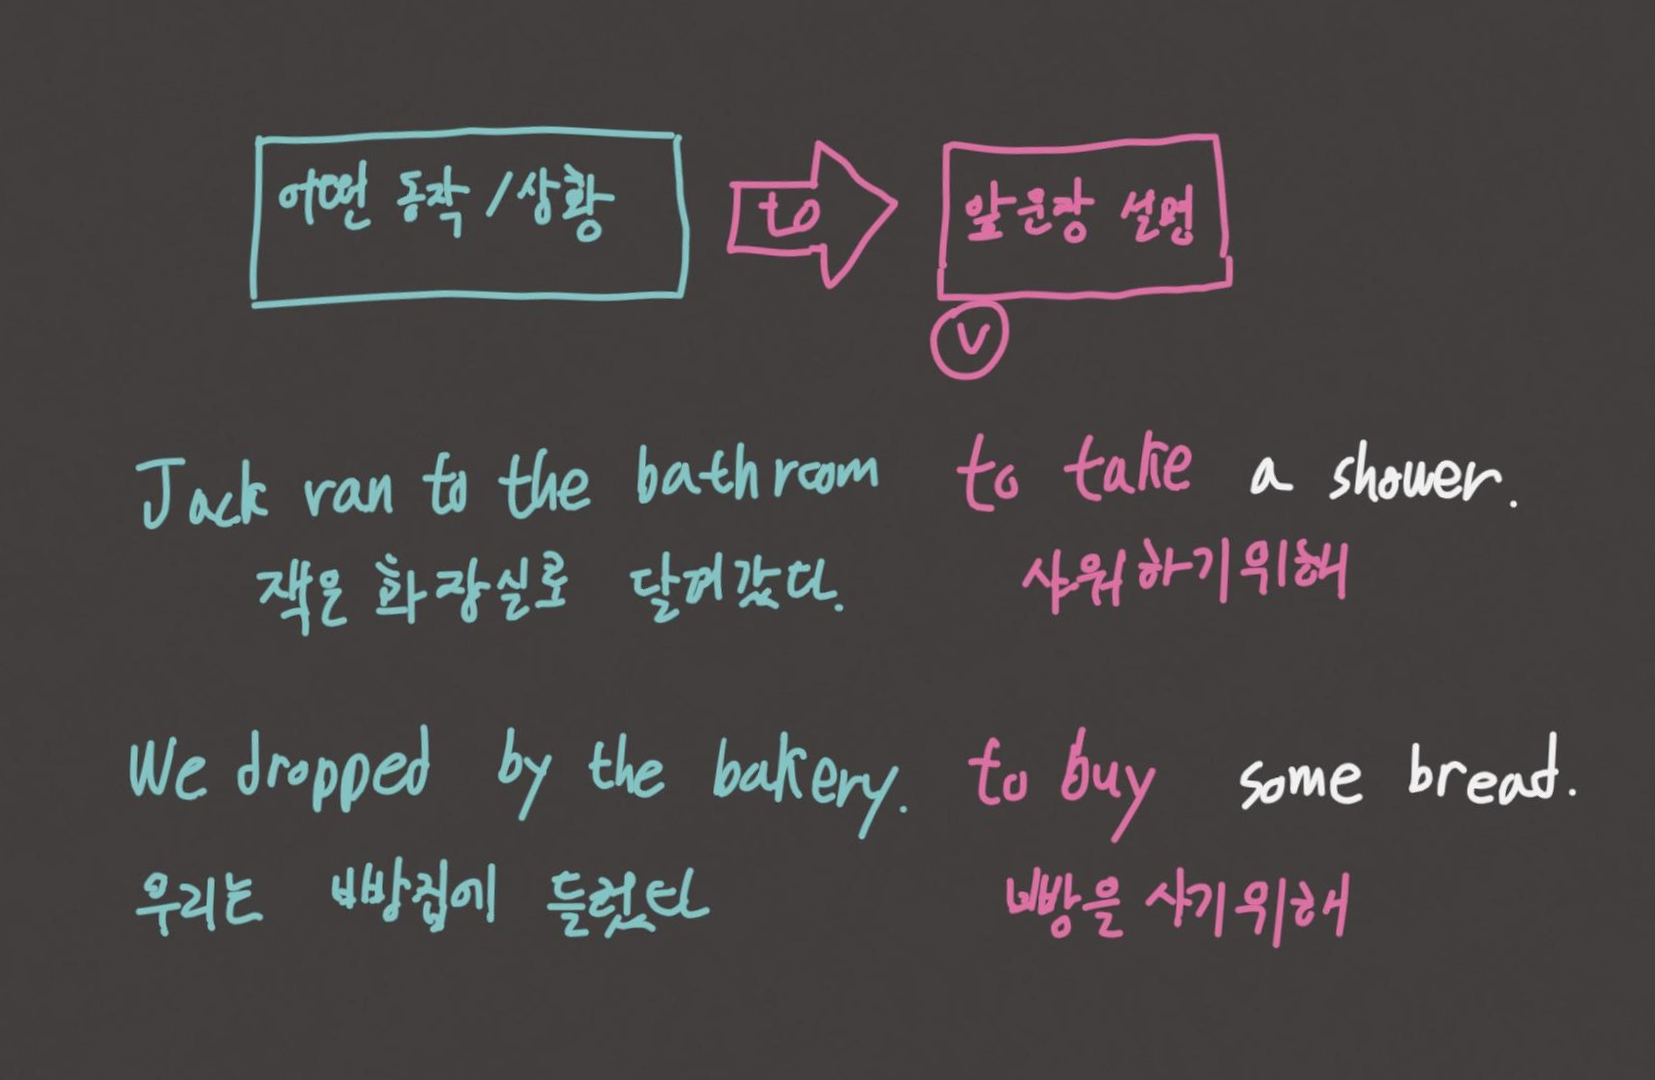 어떤 동작 / 상황 to 앞문장 설명
V
Jack ran to the bathroom to take a shower.
잭은 화장실로 달려갔다. 샤워하기위해
We dropped by the bakery. to buy some bread.
우리는 빵집에 들렀다 빵을 사기위해